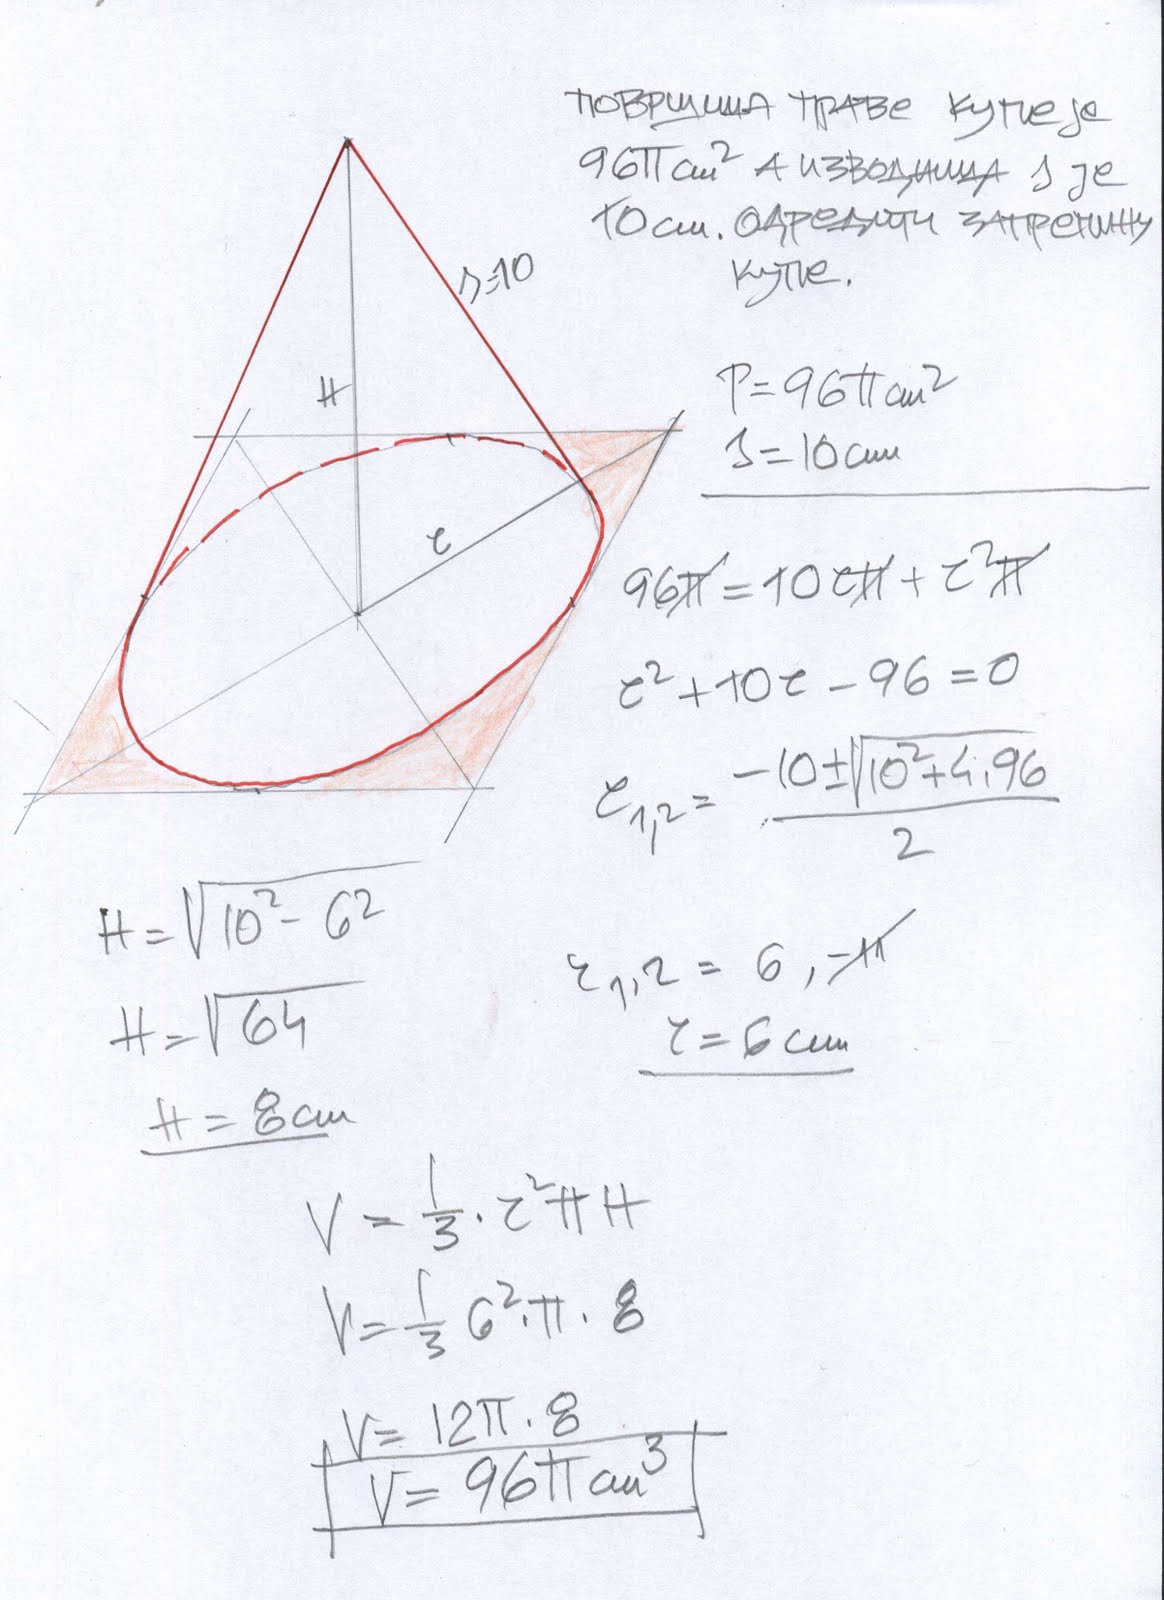 ПОВРШИНА ПРАВЕ КУПЕ ЈЕ
96π cm² А ИЗВОДНИЦА s је
10 cm. ОДРЕДИТИ ЗАПРЕМИНУ
КУПЕ.
s=10
H
r
P=96π cm²
s=10cm
96π = 10rπ + r²π
r² + 10r - 96 = 0
r₁,₂ = (-10 ± √(10² + 4·96)) / 2
r₁,₂ = 6,
r = 6 cm
H = √(10² - 6²)
H = √64
H = 8 cm
V = 1/3 · r²π H
V = 1/3 6²·π·8
V = 12π · 8
V = 96π cm³